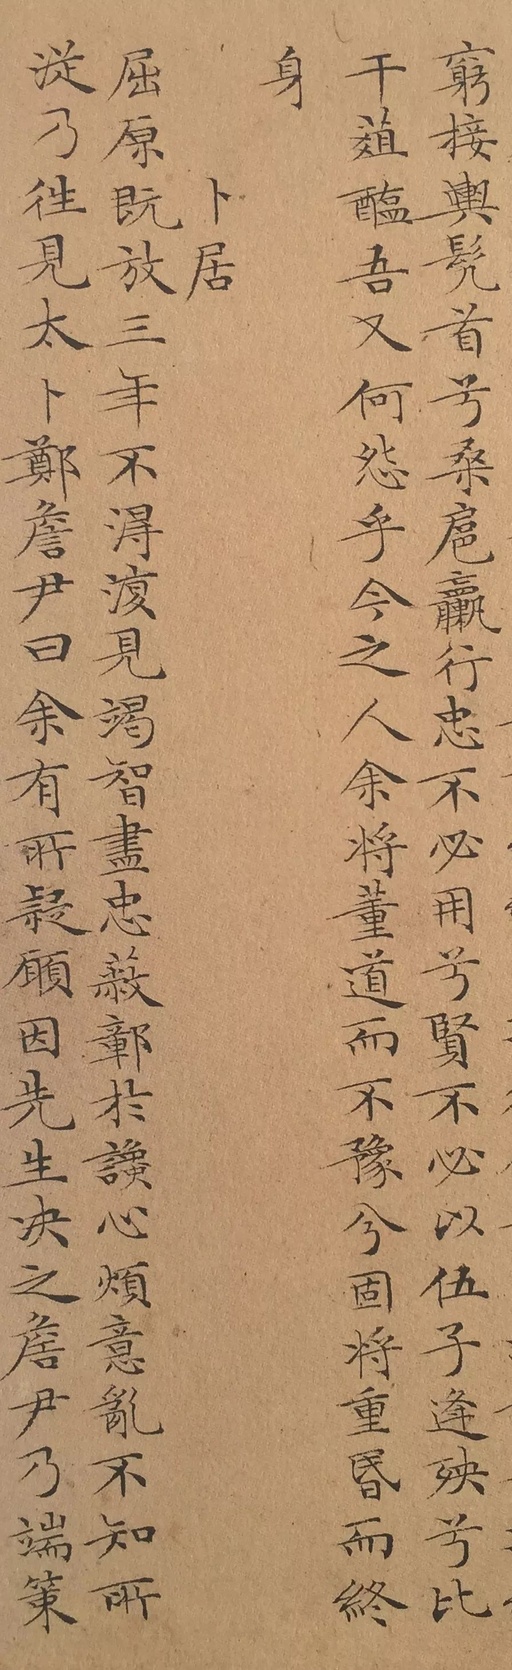 窮接輿髡首兮桑扈臝行忠不必用兮賢不必以伍子逢殃兮比
干葅醢吾又何怨乎今之人余将董道而不豫兮固将重昬而終
身
卜居
屈原既放三年不淂復見竭智盡忠蔽鄣於讒心煩意亂不知所
従乃徃見太卜鄭詹尹曰余有所疑願因先生决之詹尹乃端策